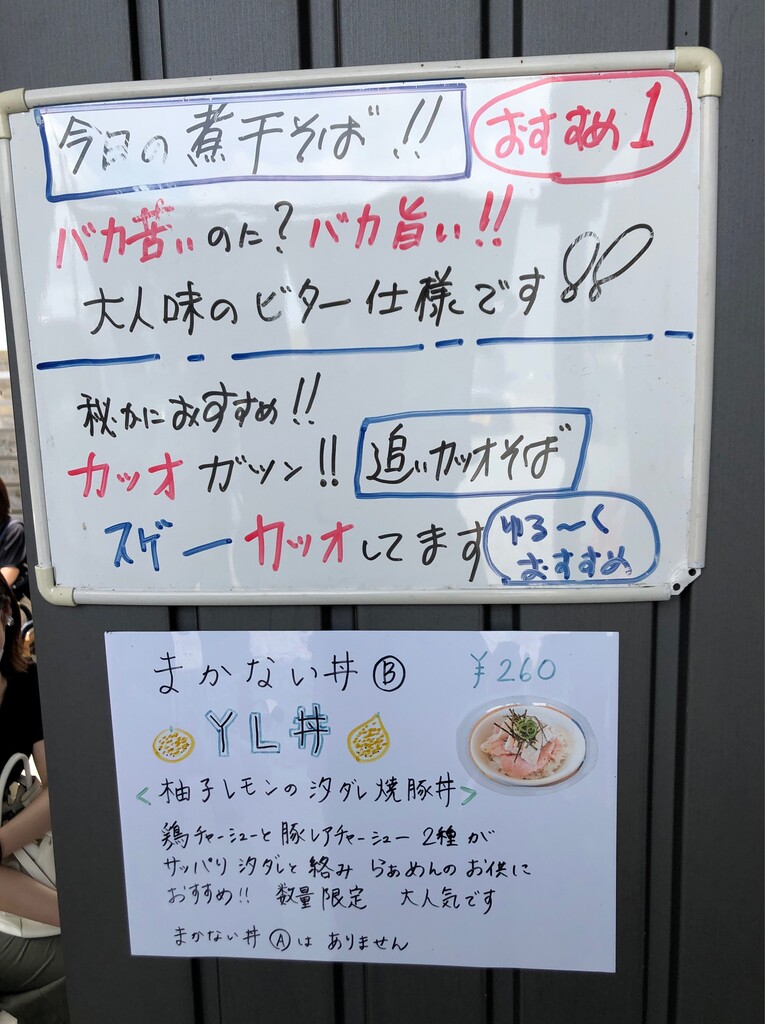 今日の煮干そば!!
おすすめ1
バカ苦いのに?バカ旨い!!
大人味のビター仕様です
秘かにおすすめ!!
カツオ ガツン!! 追いカツオそば
スゲーカツオしてます
ゆる〜く
おすすめ
まかない丼Ⓑ ¥260
YL丼
<柚子レモンの汐ダレ焼豚丼>
鶏チャーシューと豚レアチャーシュー2種が
サッパリ汐ダレと絡み らぁめんのお供に
おすすめ!! 数量限定 大人気です
まかない丼Ⓐはありません